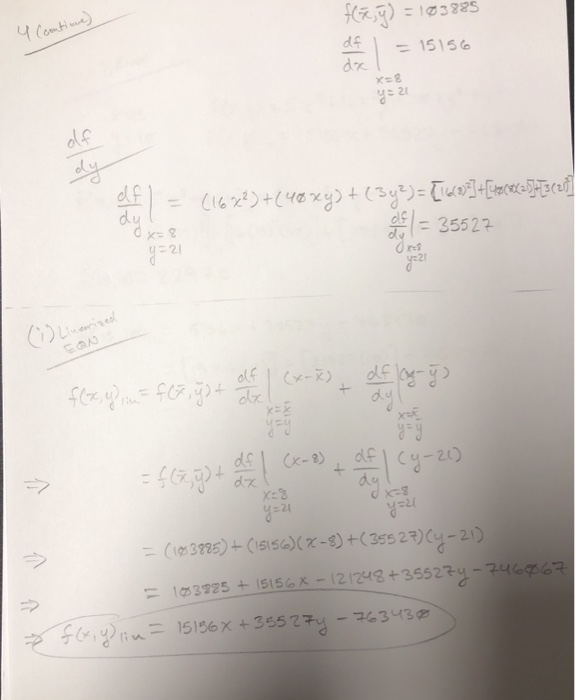 4 (continue)
f(x̄,ȳ) = 103885
df/dx | x=8 y=21 = 15156
df/dy
df/dy | x=8 y=21 = (16x²)+(40xy)+(3y²) = [16(8)²]+[40(8)(21)]+[3(21)²]
df/dy | x=8 y=21 = 35527
(i) Linearized EQN:
f(x,y)lin = f(x̄,ȳ) + df/dx | x=x̄ y=ȳ (x-x̄) + df/dy | x=x̄ y=ȳ (y-ȳ)
⇒ = f(x̄,ȳ) + df/dx | x=8 y=21 (x-8) + df/dy | x=8 y=21 (y-21)
⇒ = (103885)+(15156)(x-8)+(35527)(y-21)
⇒ = 103885 + 15156x - 121248 + 35527y - 746067
⇒ f(x,y)lin = 15156x + 35527y - 763430